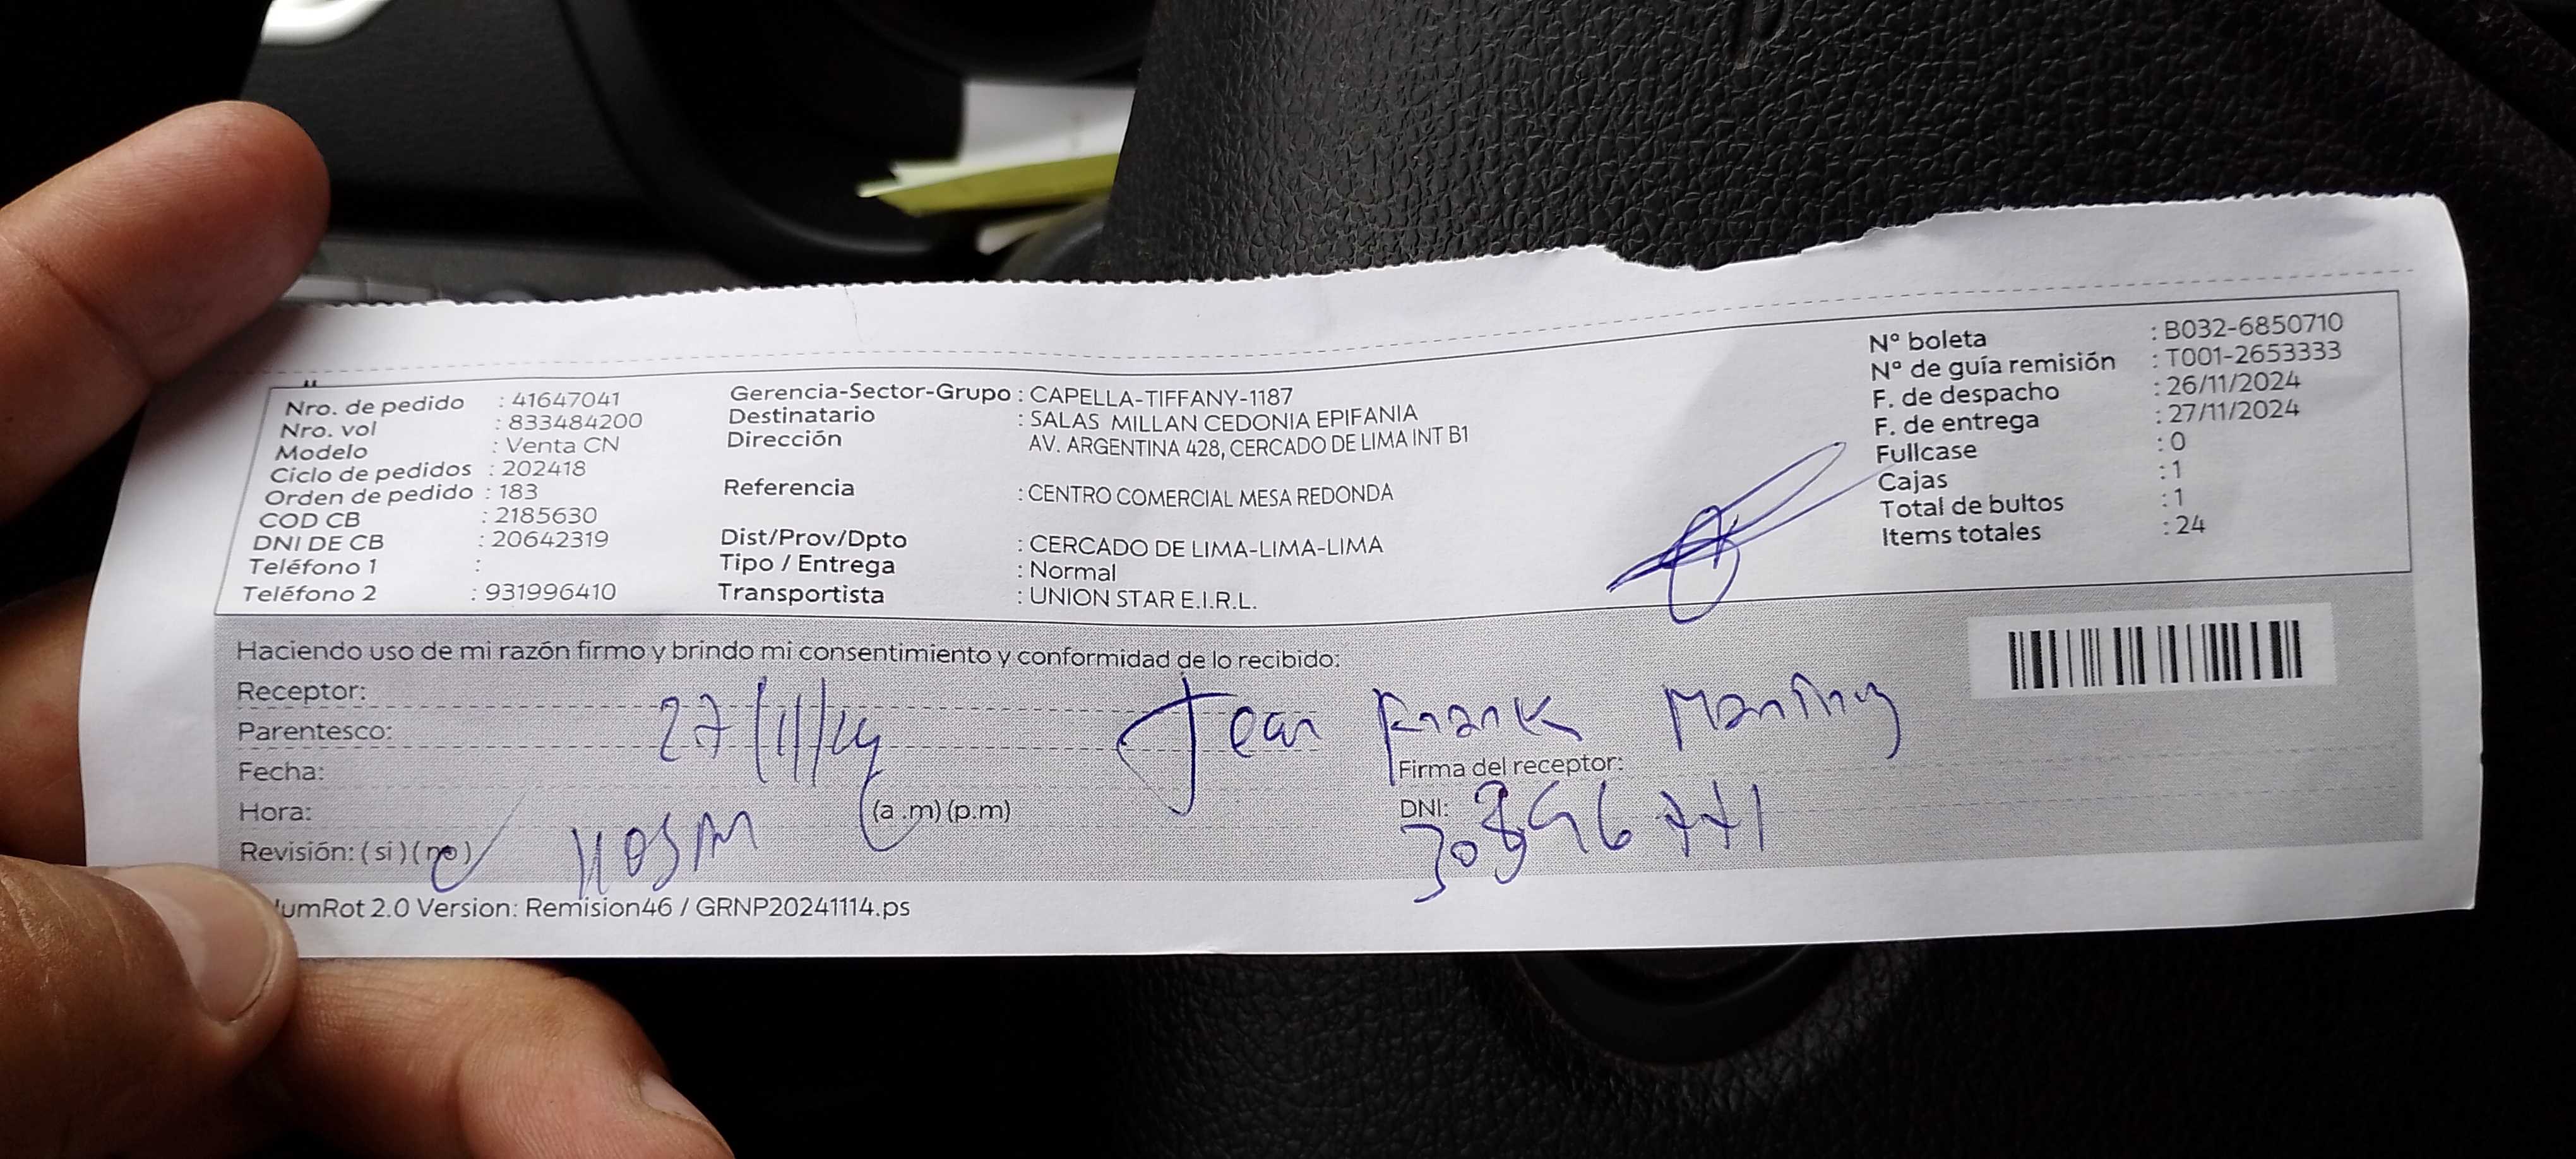 Nro. de pedido : 41647041
Nro. vol : 833484200
Modelo : Venta CN
Ciclo de pedidos : 202418
Orden de pedido : 183
COD CB : 2185630
DNI DE CB : 20642319
Teléfono 1 :
Teléfono 2 : 931996410
Gerencia-Sector-Grupo : CAPELLA-TIFFANY-1187
Destinatario : SALAS MILLAN CEDONIA EPIFANIA
Dirección AV. ARGENTINA 428, CERCADO DE LIMA INT B1
Referencia : CENTRO COMERCIAL MESA REDONDA
Dist/Prov/Dpto : CERCADO DE LIMA-LIMA-LIMA
Tipo / Entrega : Normal
Transportista : UNION STAR E.I.R.L.
Nº boleta : B032-6850710
Nº de guía remisión : T001-2653333
F. de despacho : 26/11/2024
F. de entrega : 27/11/2024
Fullcase : 0
Cajas : 1
Total de bultos : 1
Items totales : 24
Haciendo uso de mi razón firmo y brindo mi consentimiento y conformidad de lo recibido:
Receptor:
Parentesco:
27/11/24
Jean Frank
Fecha:
Firma del receptor:
Hora: (a .m) (p.m)
DNI:
Revisión: ( si ) ( no )
umRot 2.0 Version: Remision46 / GRNP20241114.ps